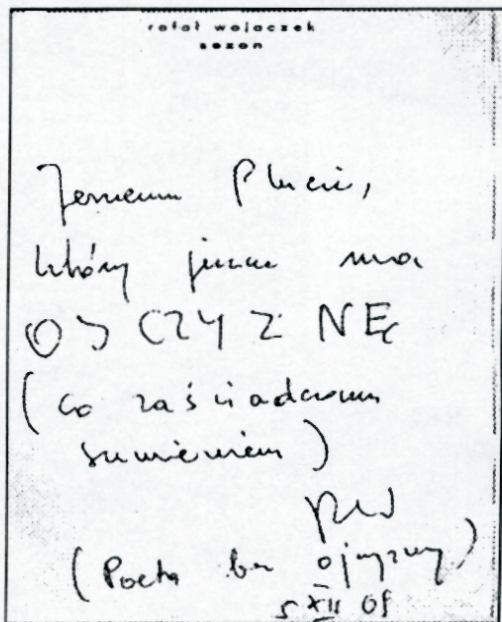 rafał wojaczek
sezon
Jerzemu Pluci,
który jeszcze ma
OJCZYZNĘ
(co zaświadczam
sumieniem)
RW
(Poeta bez ojczyzny)
5 XII